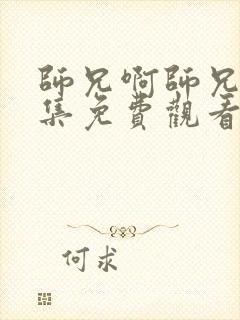 師兄啊師兄
集免費觀看
何求